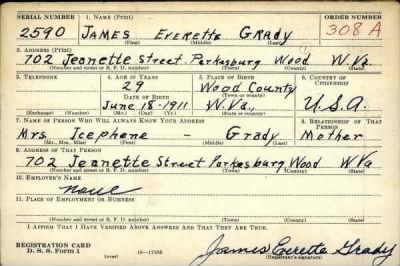 SERIAL NUMBER 1. NAME (Print) ORDER NUMBER
2590 JAMES Everette Grady 308 A
(First) (Middle) (Last)
2. ADDRESS (Print)
702 Jeanette Street Parkesburg Wood W.Va.
(Number and street or R. F. D. number) (Town) (County) (State)
3. TELEPHONE 4. AGE IN YEARS 5. PLACE OF BIRTH 6. COUNTRY OF CITIZENSHIP
29 Wood County
DATE OF BIRTH (Town or county)
June 18-1911 W.Va., U.S.A.
(Exchange) (Number) (Mo.) (Day) (Yr.) (State or country)
7. NAME OF PERSON WHO WILL ALWAYS KNOW YOUR ADDRESS 8. RELATIONSHIP OF THAT PERSON
Mrs Icephene - Grady Mother
(Mr., Mrs., Miss) (First) (Middle) (Last)
9. ADDRESS OF THAT PERSON
702 Jeanette Street Parkesburg Wood W Va
(Number and street or R. F. D. number) (Town) (County) (State)
10. EMPLOYER'S NAME
none
11. PLACE OF EMPLOYMENT OR BUSINESS
(Number and street or R. F. D. number) (Town) (County) (State)
I AFFIRM THAT I HAVE VERIFIED ABOVE ANSWERS AND THAT THEY ARE TRUE.
REGISTRATION CARD
D. S. S. Form 1 (over) 16—17105 James Everette Grady
(Registrant's signature)